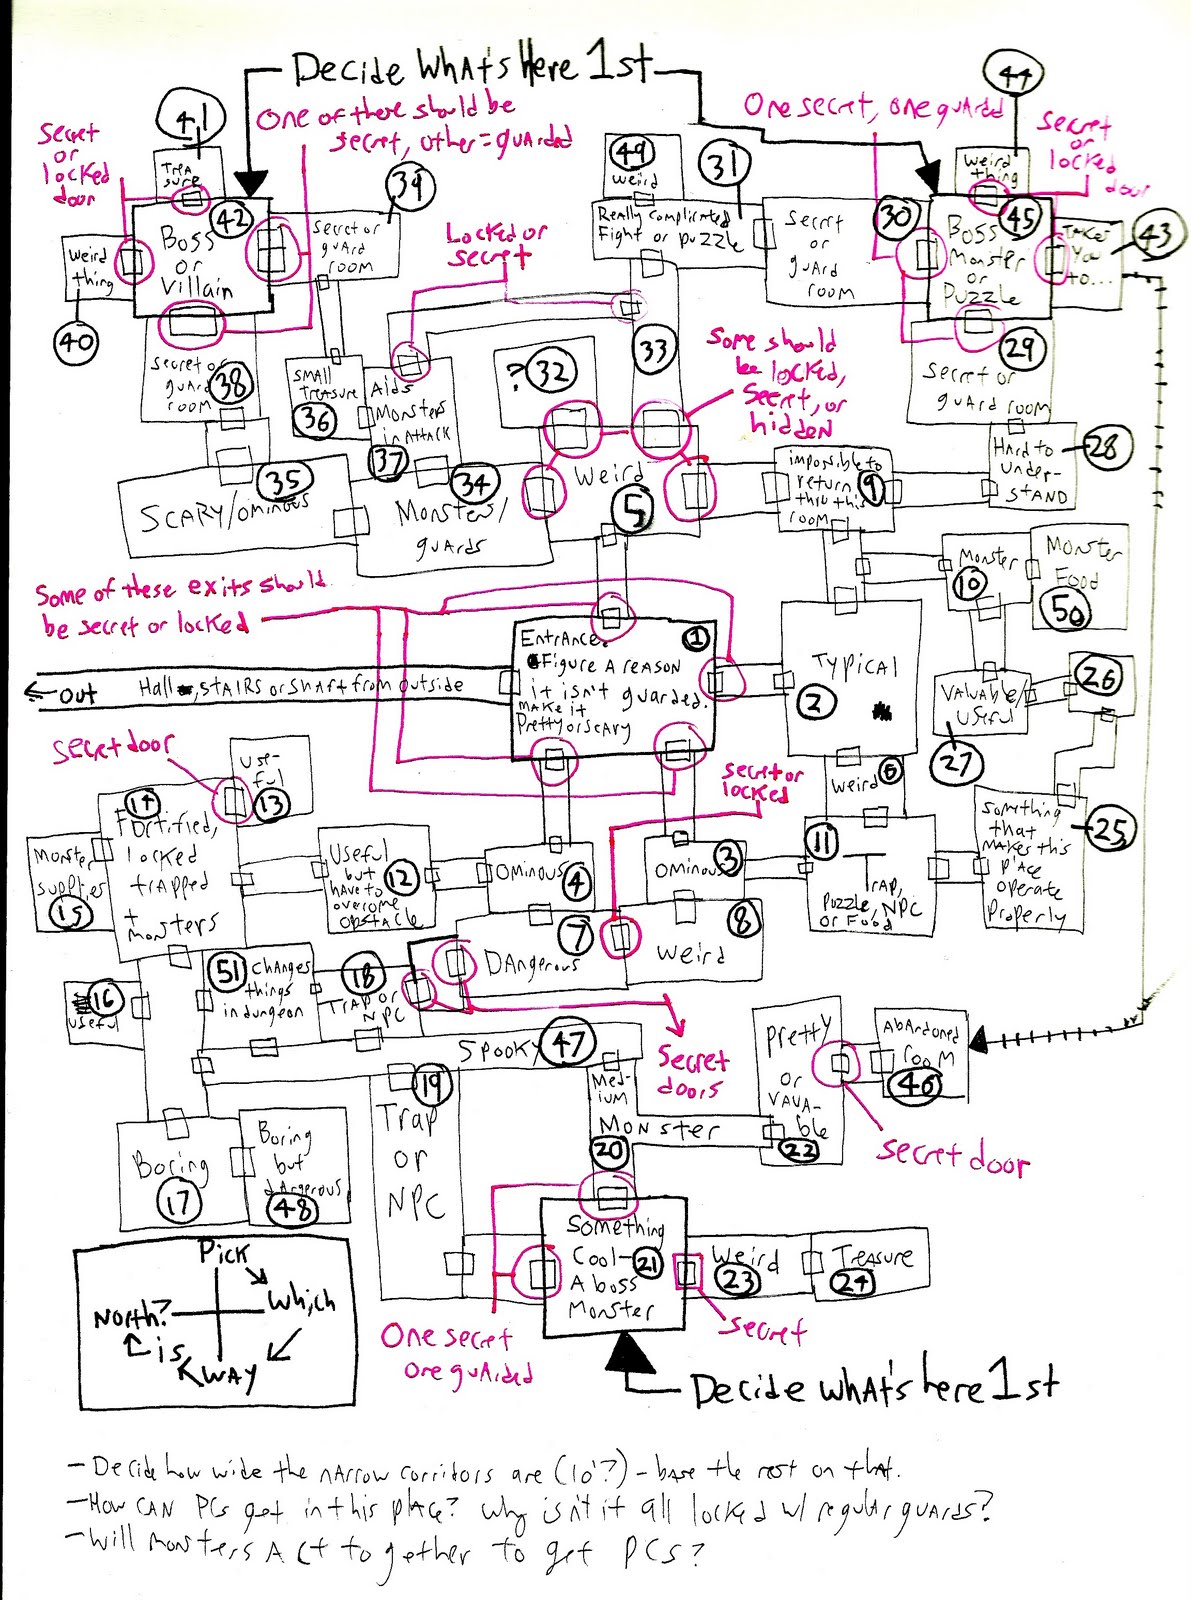 Decide What's Here 1st
44
41
One of these should be
secret, other = guarded
One secret, one guarded
Secret
or
locked
door
Secret
or
locked
door
Trea
sure
39
49
weird
31
Weird
thing
42
Boss
or
Villain
Secret or
guard
room
Really complicated
Fight or puzzle
Secret
or
guard
room
30
45
Boss
Monster
or
Puzzle
Takes
You
to...
43
Weird
thing
40
Locked or
secret
33
Some should
be locked,
Secret, or
hidden
29
Secret or
guard room
Secret or
guard
room
38
Small
Treasure
36
Aids
Monsters
in Attack
37
? 32
28
Hard to
Under-
stand
35
Scary/ominous
34
Monsters/
guards
Weird
5
impossible to
return
thru this
room
9
Monster
10
Monster
Food
50
Some of these exits should
be secret or locked
Entrance.
1
Figure a reason
it isn't guarded.
make it
Pretty or scary
Typical
2
← Out
Hall, stairs or shaft from outside
Valuable/
Useful
27
26
Secret door
Use-
ful
13
Secret or
locked
Weird 6
Something
that
makes this
place
operate
properly
25
14
Fortified,
locked
trapped
+
monsters
Monster
supplies
15
Useful
but
have to
overcome
obstacle
12
Ominous 4
Ominous 3
11
Trap,
Puzzle, NPC
or Food
7
Dangerous
8
Weird
16
Useful
51
Changes
things
in dungeon
18
Trap or
NPC
Secret
doors
Spooky 47
Pretty
or
vaua-
ble
22
Abandoned
room
46
Secret door
19
Trap
or
NPC
Med-
ium
Monster
20
Boring
17
Boring
but
dangerous
48
Something
Cool-
A boss
Monster
21
Weird
23
Treasure
24
Secret
One secret
one guarded
Pick
Which
Way
is
North?
Decide what's here 1st
- Decide how wide the narrow corridors are (10'?) - base the rest on that.
- How can PCs get in this place? Why isn't it all locked w/ regular guards?
- Will monsters act together to get PCs?